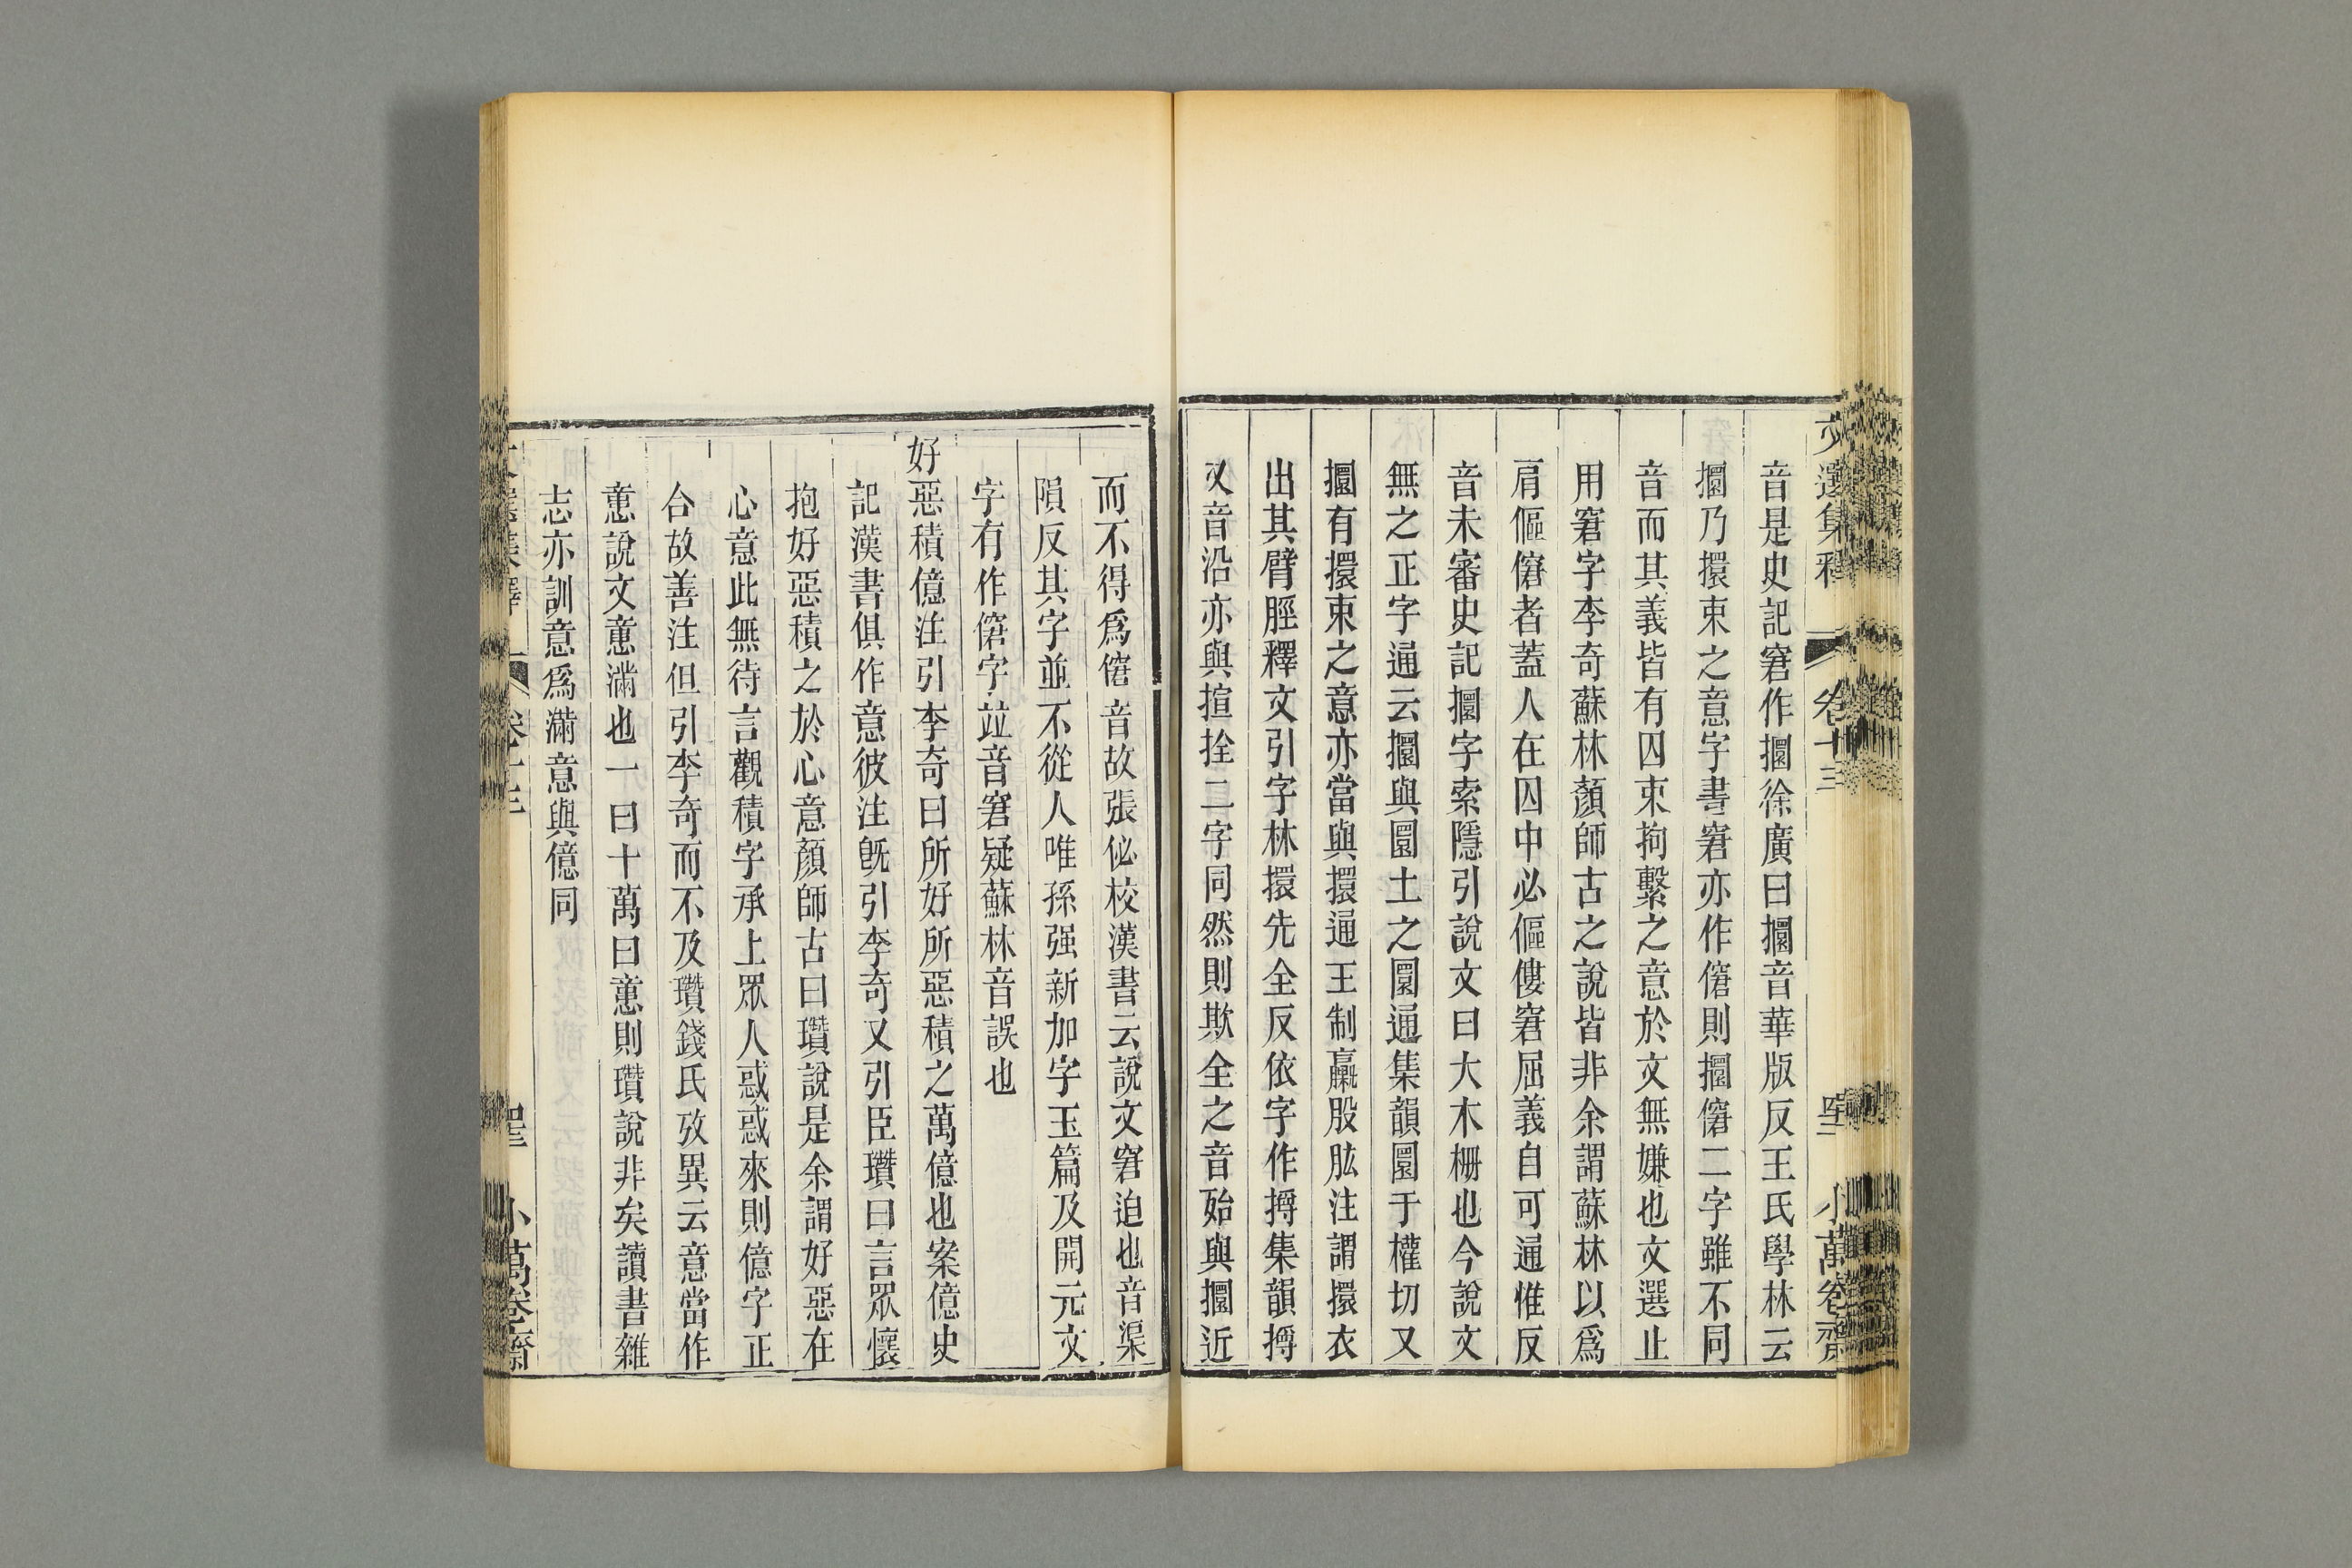 文選集釋 卷十三 小萬卷齋
音是史記窘作攌徐廣曰攌音華版反王氏學林云
攌乃擐束之意字書窘亦作僒則攌僒二字雖不同
音而其義皆有囚束拘繫之意於文無嫌也文選止
用窘字李奇蘇林顏師古之說皆非余謂蘇林以爲
肩傴僒者蓋人在囚中必傴僂窘屈義自可通惟反
音未審史記攌字索隱引說文曰大木栅也今說文
無之正字通云攌與圜土之圜通集韻圜于權切又
攌有擐束之意亦當與擐通王制臝股肱注謂擐衣
出其臂脛釋文引字林擐先全反依字作㩋集韻㩋
又音沿亦與揎拴二字同然則欺全之音殆與攌近
而不得爲僒音故張佖校漢書云說文窘迫也音渠
隕反其字並不從人唯孫强新加字玉篇及開元文
字有作僒字竝音窘疑蘇林音誤也
好惡積億注引李奇曰所好所惡積之萬億也案億史
記漢書俱作意彼注旣引李奇又引臣瓚曰言眾懷
抱好惡積之於心意顏師古曰瓚說是余謂好惡在
心意此無待言觀積字承上眾人惑惑來則億字正
合故善注但引李奇而不及瓚錢氏攷異云意當作
𢡃說文𢡃滿也一曰十萬曰𢡃則瓚說非矣讀書雜
志亦訓意爲滿意與億同
小萬卷齋